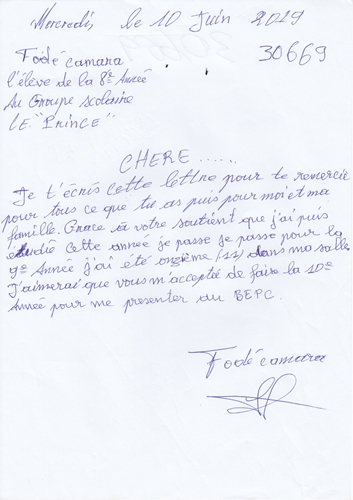 Mercredi, le 10 Juin 2019
30669
Fodé camara
l'élève de la 8e Année
Au Groupe scolaire
LE "Prince"
CHERE......
Je t'écris cette lettre pour te remercié
pour tous ce que tu as puis pour moi et ma
famille. Grace à votre soutient que j'ai puis
étudié cette année je passe je passe pour la
9e Année j'ai été onzième (11) dans ma salle
J'aimerai que vous m'accepté de faire la 10e
Année pour me presenter au BEPC.
Fodé camara